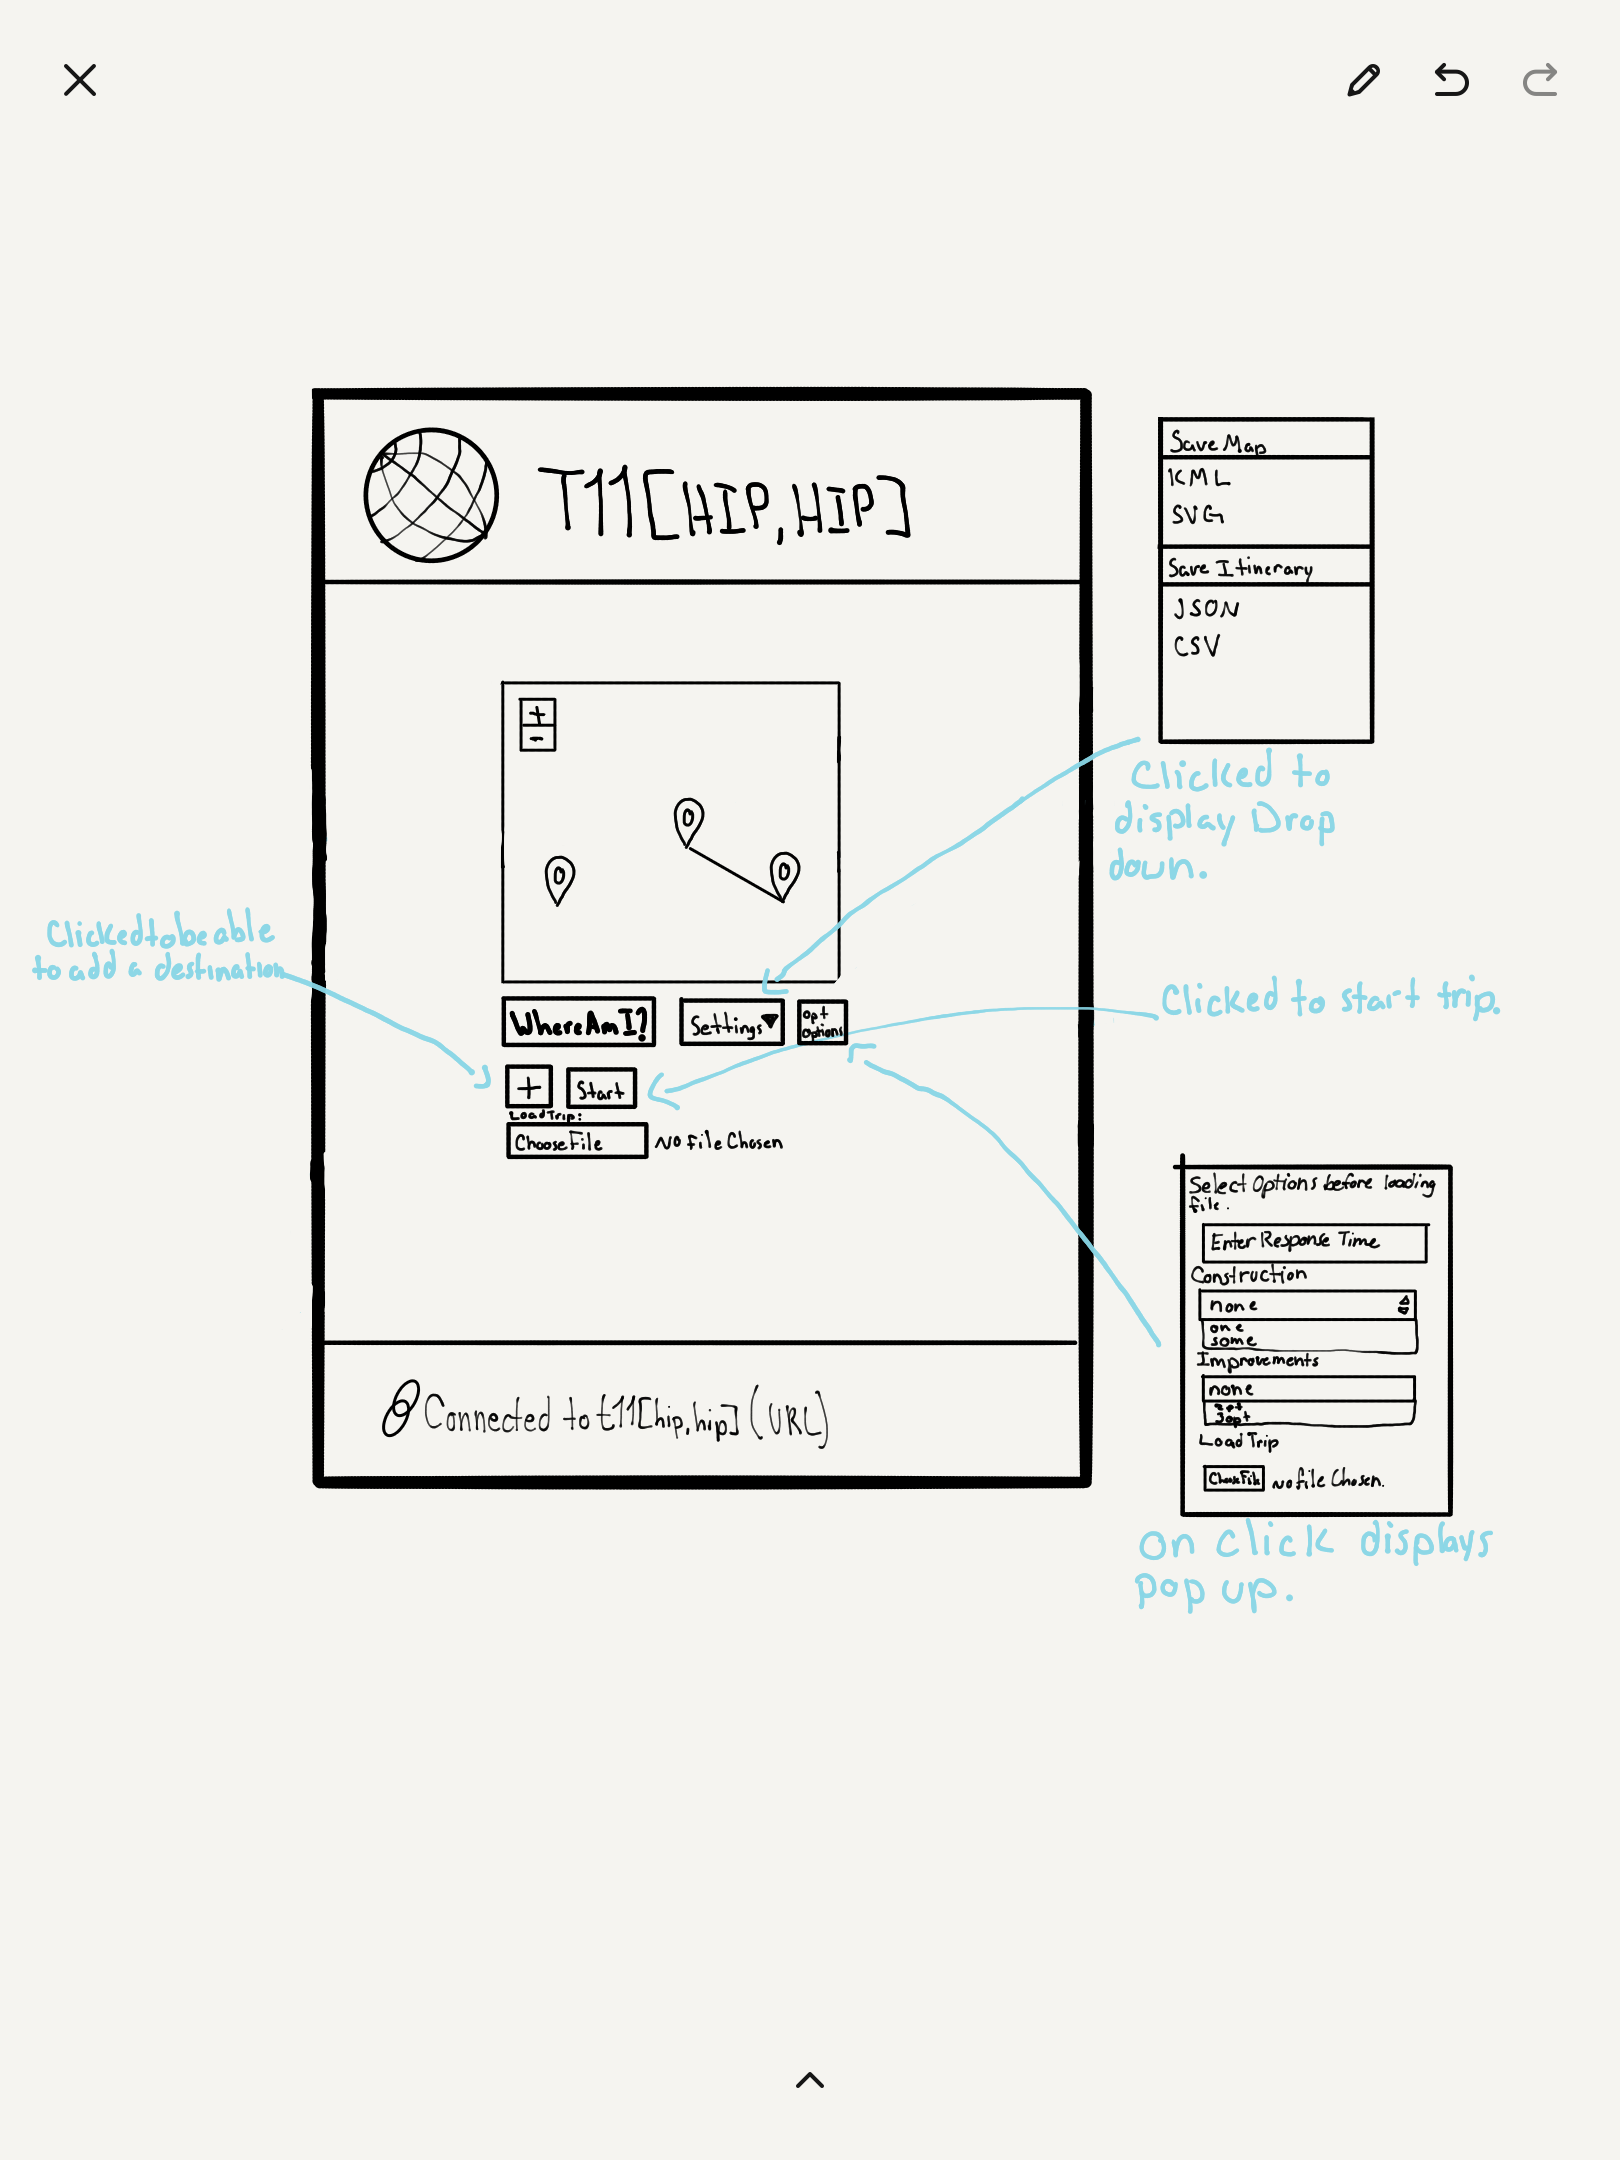 T11[HIP,HIP]
+
-
WhereAmI?
Settings
opt
options
+
Start
LoadTrip:
ChooseFile
No File Chosen
Connected to t11[hip,hip] (URL)
Save Map
KML
SVG
Save Itinerary
JSON
CSV
Clicked to
display Drop
down.
Clickedtobeable
to add a destination
Clicked to start trip.
Select Options before loading
file.
Enter Response Time
Construction
none
one
some
Improvements
none
2opt
3opt
Load Trip
ChooseFile
No file Chosen.
on click displays
pop up.